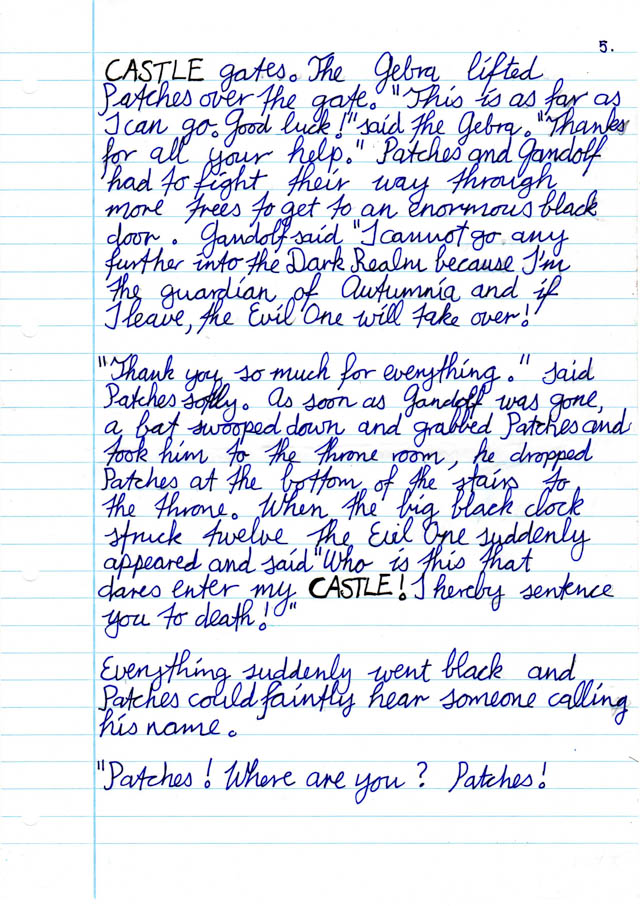 5.
CASTLE gates. The Gebra lifted
Patches over the gate. "This is as far as
I can go. Good luck!" said the Gebra. "Thanks
for all your help." Patches and Gandolf
had to fight their way through
more trees to get to an enormous black
door. Gandolf said "I cannot go any
further into the Dark Realm because I'm
the guardian of Autumnia and if
I leave, the Evil One will take over!
"Thank you so much for everything." said
Patches softly. As soon as Gandolf was gone,
a bat swooped down and grabbed Patches and
took him to the throne room, he dropped
Patches at the bottom of the stairs to
the throne. When the big black clock
struck twelve the Evil One suddenly
appeared and said "Who is this that
dares enter my CASTLE! I hereby sentence
you to death!"
Everything suddenly went black and
Patches could faintly hear someone calling
his name.
"Patches! Where are you? Patches!